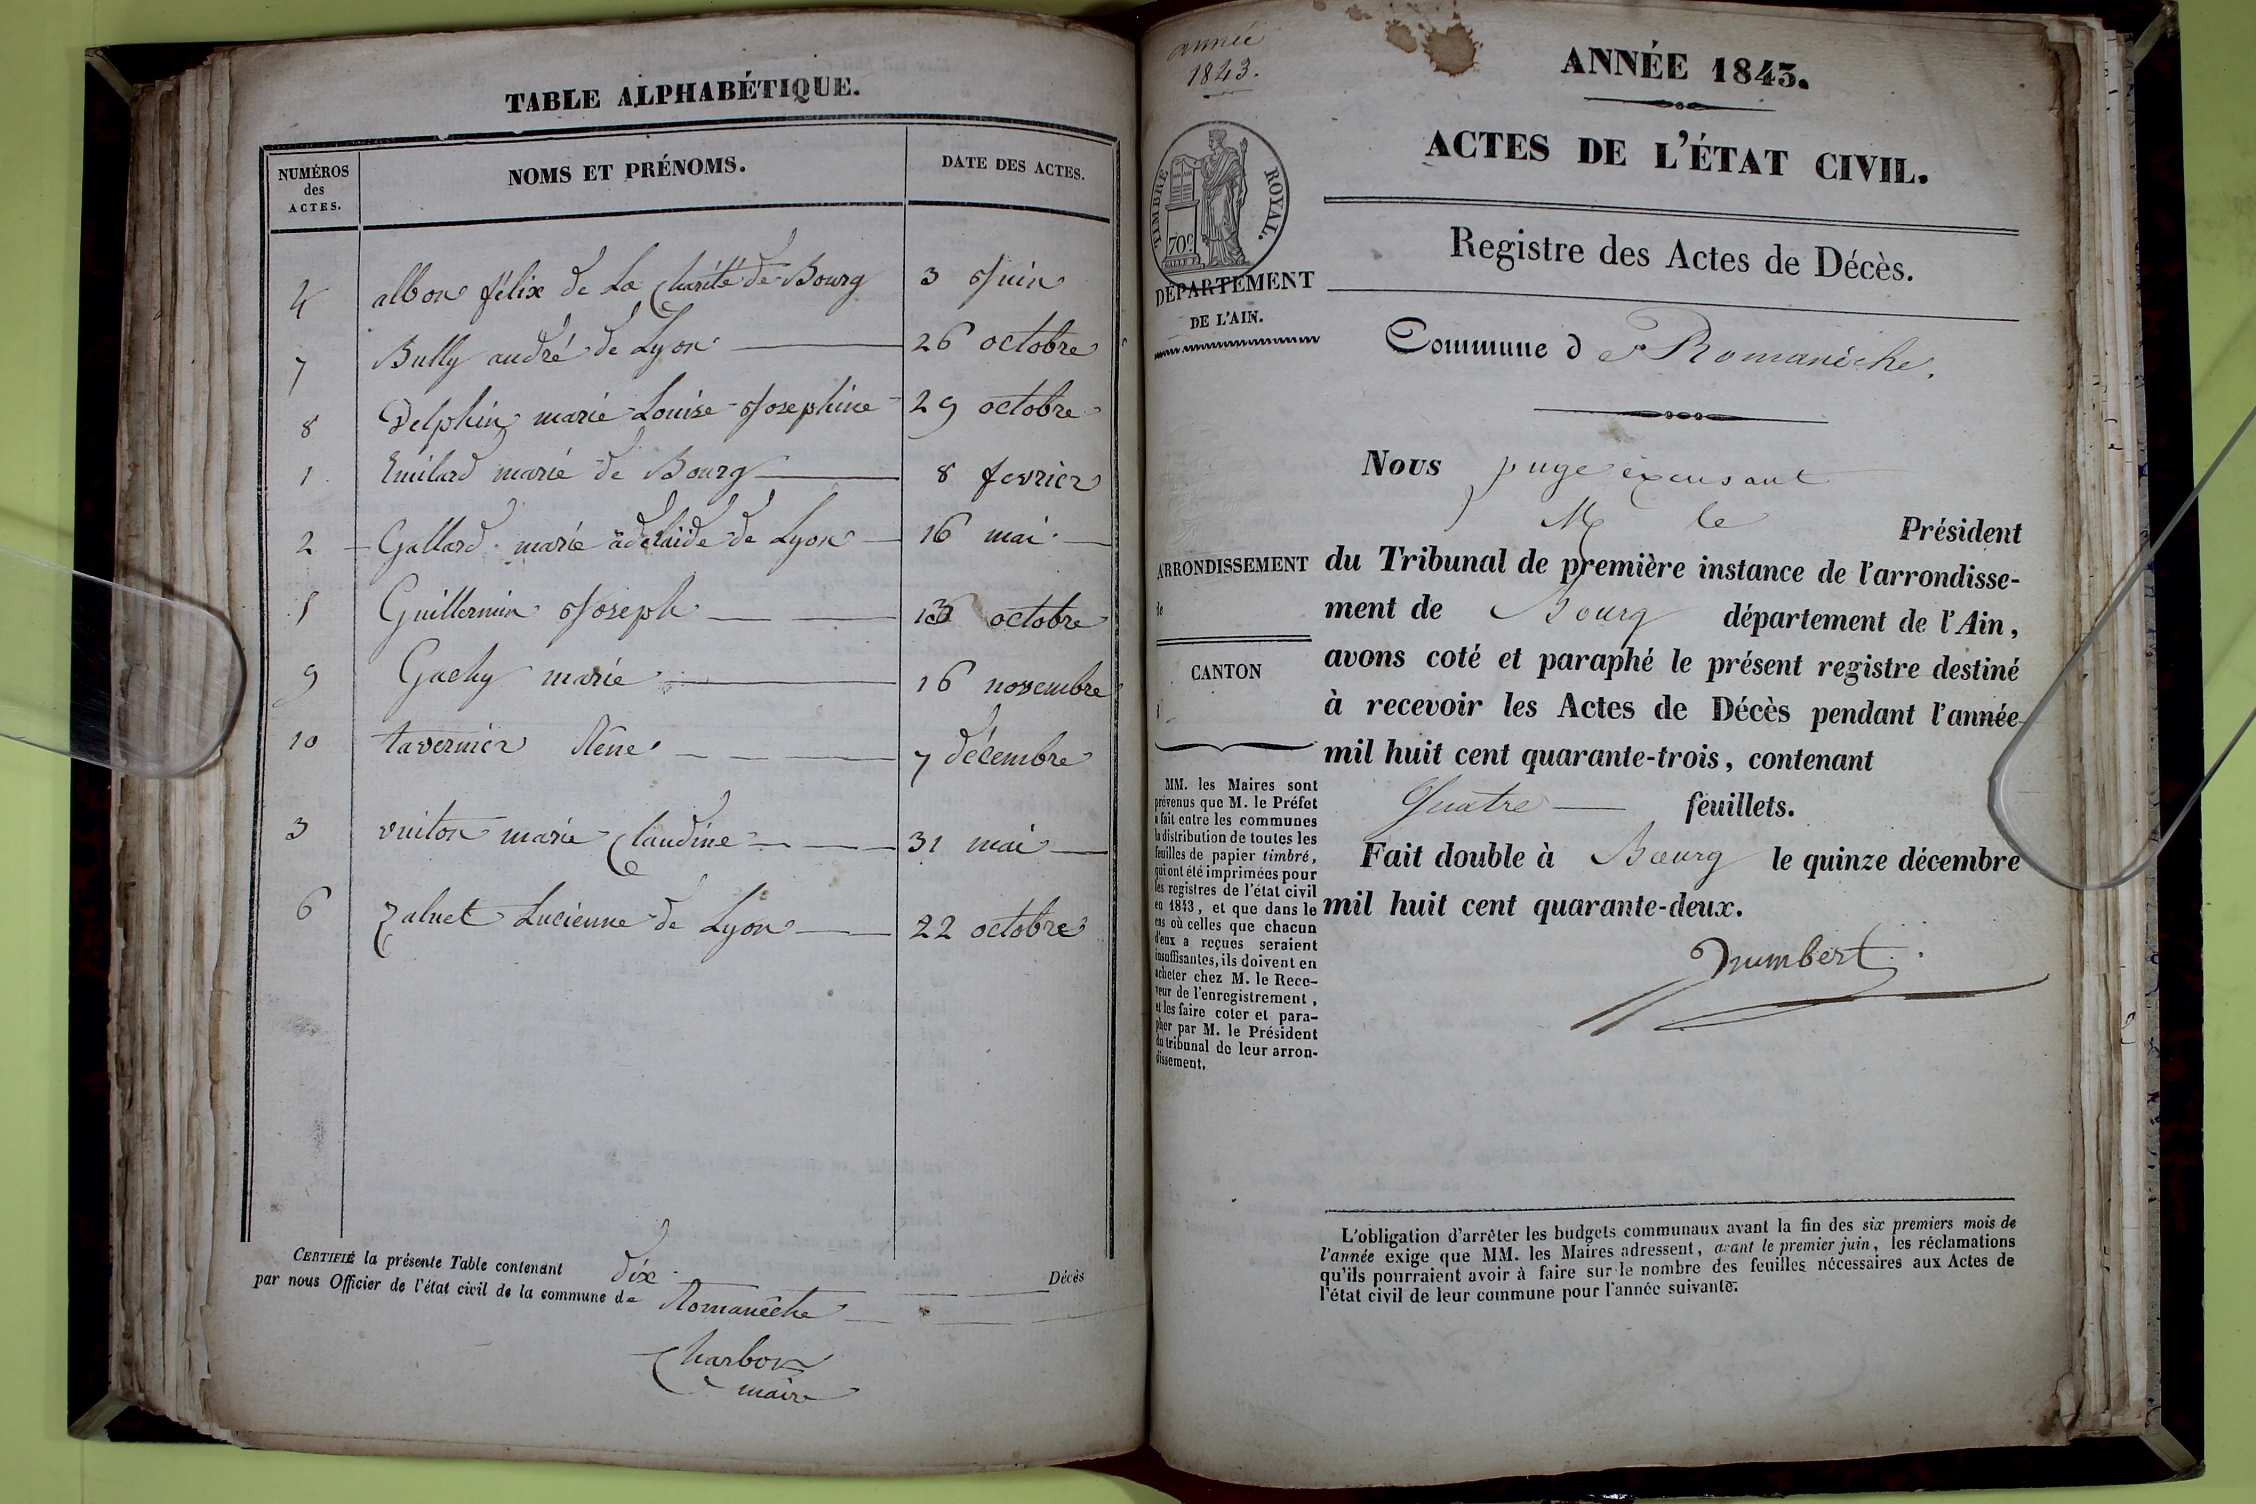 TABLE ALPHABÉTIQUE.
NUMÉROS
des
ACTES.
NOMS ET PRÉNOMS.
DATE DES ACTES.
4 albon félix de La Charité de Bourg 3 Juin
7 Bully andré de Lyon 26 octobre
8 Delphin marie Louise Josephine 29 octobre
1 Emilard marie de Bourg 8 fevrier
2 Gallard marie adelaïde de Lyon 16 mai
5 Guillermin Joseph octobre
9 Gachy marie 16 novembre
10 tavernier Réné 7 décembre
3 vuiton marie Claudine 31 mai
6 Zaluet Lucienne de Lyon 22 octobre
CERTIFIÉ la présente Table contenant dix Décès
par nous Officier de l'état civil de la commune de Romanêche
Charbon
maire
année
1843.
TIMBRE ROYAL.
70c
DÉPARTEMENT
DE L'AIN.
ARRONDISSEMENT
de
CANTON
d
MM. les Maires sont
prévenus que M. le Préfet
a fait entre les communes
la distribution de toutes les
feuilles de papier timbré,
qui ont été imprimées pour
les registres de l'état civil
en 1843, et que dans le
cas où celles que chacun
d'eux a reçues seraient
insuffisantes, ils doivent en
acheter chez M. le Rece-
veur de l'enregistrement,
et les faire coter et para-
pher par M. le Président
du tribunal de leur arron-
dissement.
ANNÉE 1843.
ACTES DE L'ÉTAT CIVIL.
Registre des Actes de Décès.
Commune de Romanêche.
Nous juge
M le Président
du Tribunal de première instance de l'arrondisse-
ment de Bourg département de l'Ain,
avons coté et paraphé le présent registre destiné
à recevoir les Actes de Décès pendant l'année
mil huit cent quarante-trois, contenant
Quatre feuillets.
Fait double à Bourg le quinze décembre
mil huit cent quarante-deux.
L'obligation d'arrêter les budgets communaux avant la fin des six premiers mois de
l'année exige que MM. les Maires adressent, avant le premier juin, les réclamations
qu'ils pourraient avoir à faire sur le nombre des feuilles nécessaires aux Actes de
l'état civil de leur commune pour l'année suivante.